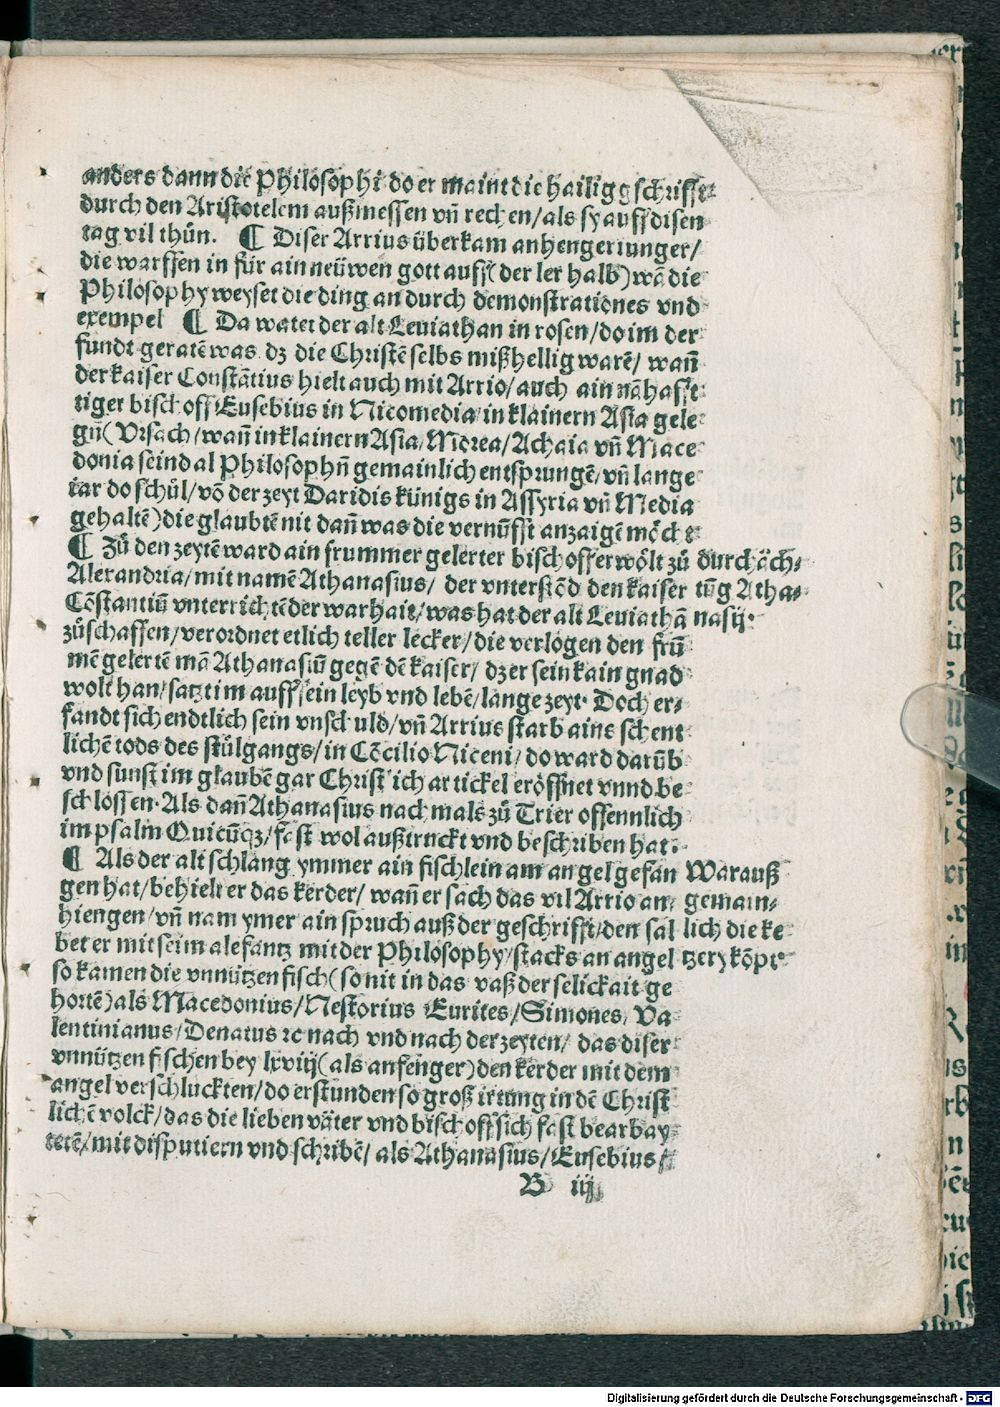 anders dann die Philosophi do er maint die hailig gschrifft
durch den Aristotelem außmessen vñ rechen/als sy auff disen
tag vil thůn. ¶ Diser Arrius überkam anhenger iunger/
die warffen in für ain neüwen gott auff (der ler halb) wā die
Philosophy weyset die ding an durch demonstrationes vnd
exempel ¶ Da watet der alt Leuiathan in rosen/do im der
fundt geratē was dz die Christē selbs mißhellig warē/ wañ
der kaiser Constātius hielt auch mit Arrio/auch ain nāhafft
tiger bischoff Eusebius in Nicomedia/in klainern Asia gele
gñ(Vrsach/wañ in klainern Asia/Morea/Achaia vñ Mace
donia seind al Philosophñ gemainlich entsprungē/vñ lange
iar do schůl/vō der zeyt Daridis künigs in Assyria vñ Media
gehaltē)die glaubtē nit dañ was die vernüfft anzaigē möcht
¶ Zů den zeytē ward ain frummer gelerter bischoff erwölt zů
Alexandria/mit namē Athanasius/ der vnterstōd den kaiser
Cōstantiū vnterrichtē der warhait/was hat der alt Leuiathā
zůschaffen/verordnet etlich teller lecker/die verlogen den frū
mē gelertē mā Athanasiū gegē dē kaiser/ dz er sein kain gnad
wolt han/satzt im auff sein leyb vnd lebē/lange zeyt. Doch er/
fandt sich endtlich sein vnschuld/vñ Arrius starb ains schent
lichē tods des stůlgangs/in Cōcilio Niceni/do ward darūb
vnd sunst im glaubē gar Christlich artickel eröffnet vnnd be
schlossen. Als dañ Athanasius nachmals zů Trier offennlich
im psalm Quicūqz/fast wol außtruckt vnd beschriben hat.
¶ Als der alt schlang ymmer ain fischlein am angel gefan
gen hat/behielt er das kerder/wañ er sach das vil Arrio an/
hiengen/vñ nam ymer ain spruch auß der geschrifft/den sal
bet er mit seim alefantz mit der Philosophy/stacks an angel
so kamen die vnnützen fisch(so nit in das vaß der selickait ge
hortē)als Macedonius/Nestorius Eurites/Simones, Va
lentinianus/Denatus ꝛc nach vnd nach der zeyten/ das diser
vnnützen fischen bey lxviij(als anfenger)den kerder mit dem
angel verschluckten/do erstunden so groß irtung in dē Christ
lichē volck/das die lieben väter vnd bischoff sich fast bearbay
tetē/mit disputiern vnd schribē/ als Athanasius/Eusebius/
B iij
durchäch/
tūg Atha/
nasij.
Warauß
gemain/
lich die ke
tzery kōpt
Digitalisierung gefördert durch die Deutsche Forschungsgemeinschaft - DFG